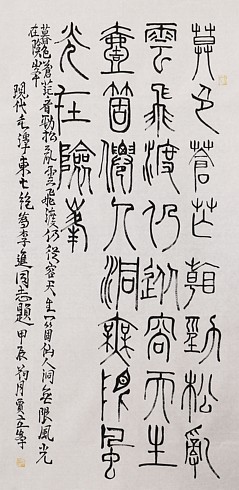 莫色蒼芒看勁松亂
雲飛渡仍從容天生
壹箇僊人洞無限風
光在險峯
暮色蒼茫看勁松亂雲飛渡仍從容天生一箇仙人洞無限風光
在險峯
現代毛澤東七絕為李進同志題 甲辰 月賈立